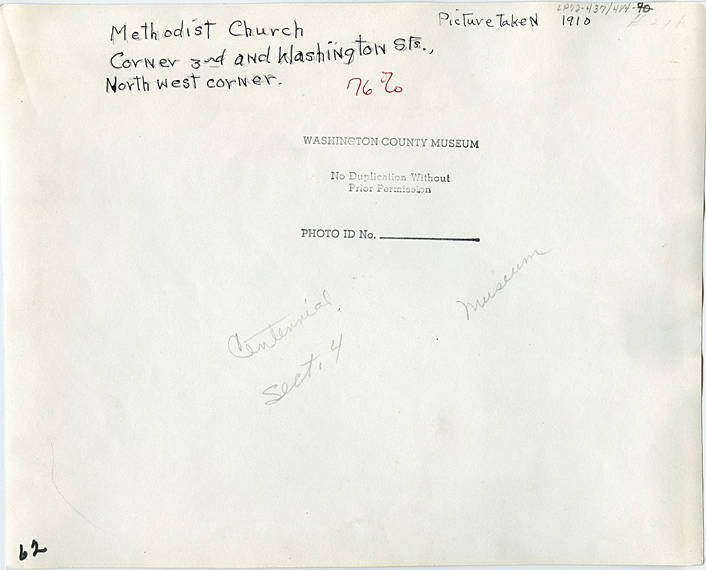 Methodist Church
Picture Taken 1910
Corner 3nd and Washington Sts.,
North west corner.
76%
WASHINGTON COUNTY MUSEUM
No Duplication Without
Prior Permission
PHOTO ID No.
Museum
Centennial
Sect. 4
62